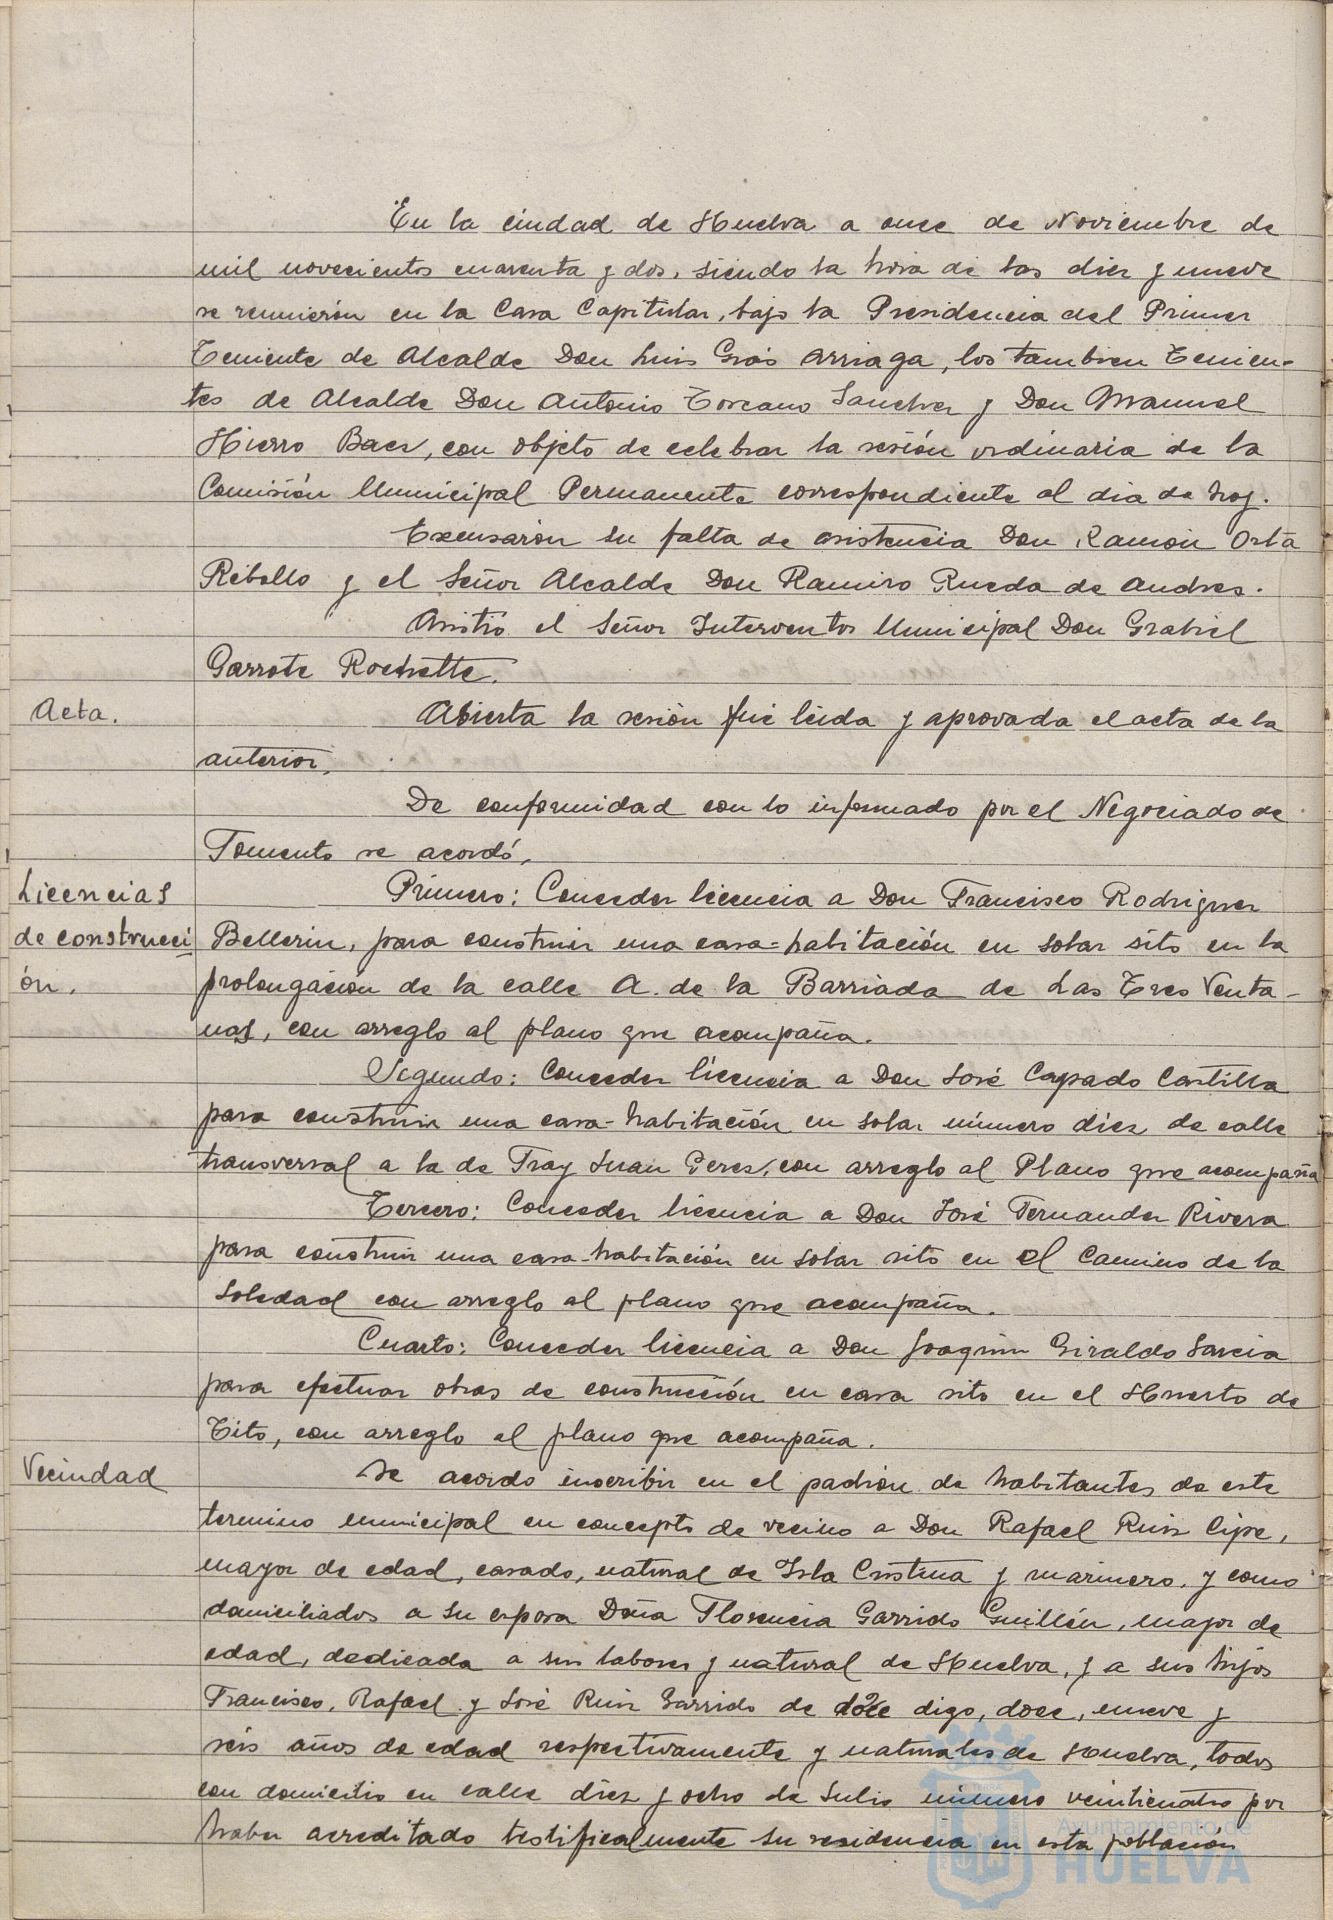 En la ciudad de Huelva a once de Noviembre de
mil novecientos cuarenta y dos, siendo la hora de las diez y nueve
se reunierón en la Casa Capitular, bajo la Presidencia del Primer
Teniente de Alcalde Don Luis Grós Arriaga, los tambien Tenien-
tes de Alcalde Don Antonio Toscano Sanchez y Don Manuel
Hierro Baez, con objeto de celebrar la sesión ordinaria de la
Comisión Municipal Permanente correspondiente al dia de hoy.
Excusarón su falta de asistencia Don Ramón Orta
Rebollo y el Señor Alcalde Don Ramiro Rueda de Andres.
Asistió el Señor Interventor Municipal Don Grabiel
Garrote Rochette.
Acta.
Abierta la sesión fué leida y aprovada el acta de la
anterior.
De conformidad con lo informado por el Negociado de
Fomento se acordó,
Licencias
de construcci
ón.
Primero: Conceder licencia a Don Francisco Rodriguez
Bellerin, para construir una casa=habitación en solar sito en la
prolongación de la calle A. de la Barriada de Las Tres Venta-
nas, con arreglo al plano que acompaña.
Segundo: Conceder licencia a Don José Capado Castilla
para construir una casa-habitación en solar número diez de calle
transversal a la de Fray Juan Perez, con arreglo al Plano que acompaña
Tercero: Conceder licencia a Don José Fernandez Rivera
para construir una casa-habitación en solar sito en el Camino de la
Soledad con arreglo al plano que acompaña.
Cuarto: Conceder licencia a Don Joaquin Giraldo Garcia
para efectuar obras de construcción en casa sito en el Huerto de
Tito, con arreglo al plano que acompaña.
Vecindad
Se acordo inscribir en el padrón de habitantes de este
termino municipal en concepto de vecino a Don Rafael Ruiz Cipe,
mayor de edad, casado, natural de Isla Cristina y marinero, y como
domiciliados a su esposa Doña Florencia Garrido Guillén, mayor de
edad, dedicada a sus labores y natural de Huelva, y a sus hijos
Francisco, Rafael y José Ruiz Garrido de doce digo, doce, nueve y
séis años de edad respectivamente y naturales de Huelva, todos
con domicilio en calle diez y ocho de Julio número veinticuatro por
haber acreditado testificalmente su residencia en esta población
Ayuntamiento de
HUELVA